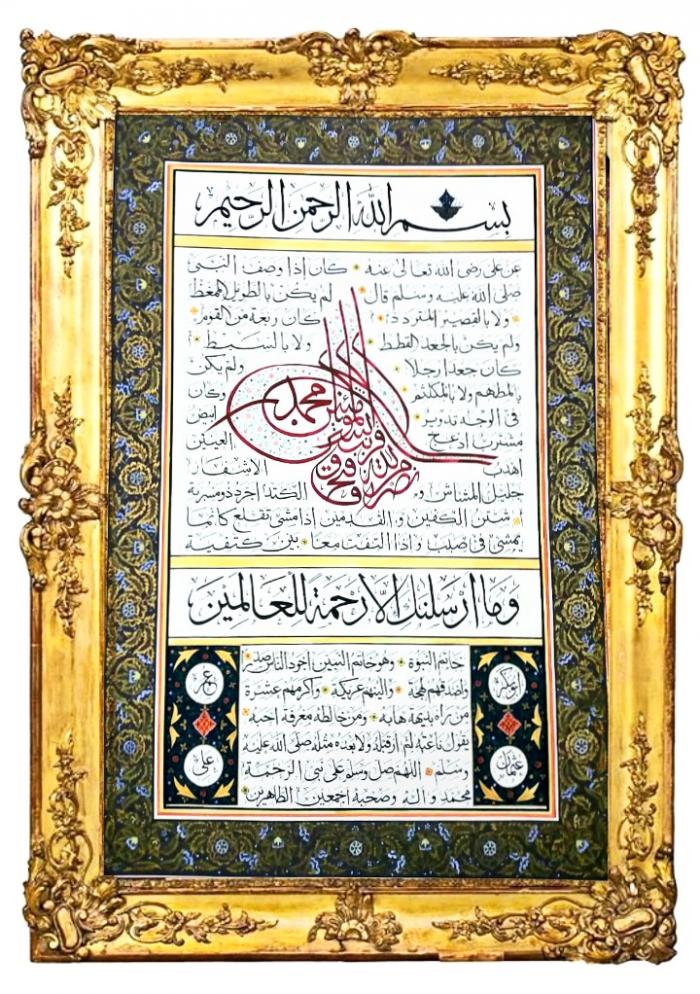 بسم الله الرحمن الرحيم
عن على رضى الله تعالى عنه كان اذا وصف النبى
صلى الله عليه وسلم قال لم يكن بالطويل الممغط
ولا بالقصير المتردد كان ربعة من القوم
ولم يكن بالجعد القطط ولا بالسبط
كان جعدا رجلا ولم يكن
بالمطهم ولا بالمكلثم وكان
فى الوجه تدوير ابيض
مشرب ادعج العينين
اهدب الاشفار
جليل المشاش و الكتد اجرد ذو مسربة
شثن الكفين والقدمين اذا مشى تقلع كانما
يمشى فى صبب واذا التفت معا بين كتفيه
نصر من الله وفتح قريب وبشر المؤمنين محمد
وما ارسلنك الا رحمة للعالمين
ابوبكر
عمر
عثمان
على
خاتم النبوة وهو خاتم النبين اجود الناس صدرا
واصدقهم لهجة والينهم عريكة واكرمهم عشرة
من راه بديهة هابه ومن خالطه معرفة احبه
يقول ناعته لم ار قبله ولا بعده مثله صلى الله عليه
وسلم اللهم صل وسلم على نبى الرحمة
محمد واله وصحبه اجمعين الطاهرين